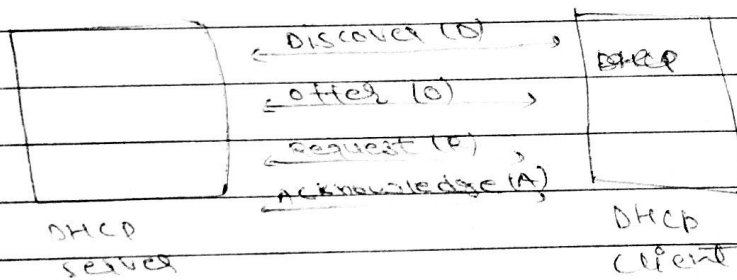 Discover (D)
DHCP
Offer (O)
Request (R)
Acknowledge (A)
DHCP
server
DHCP
Client